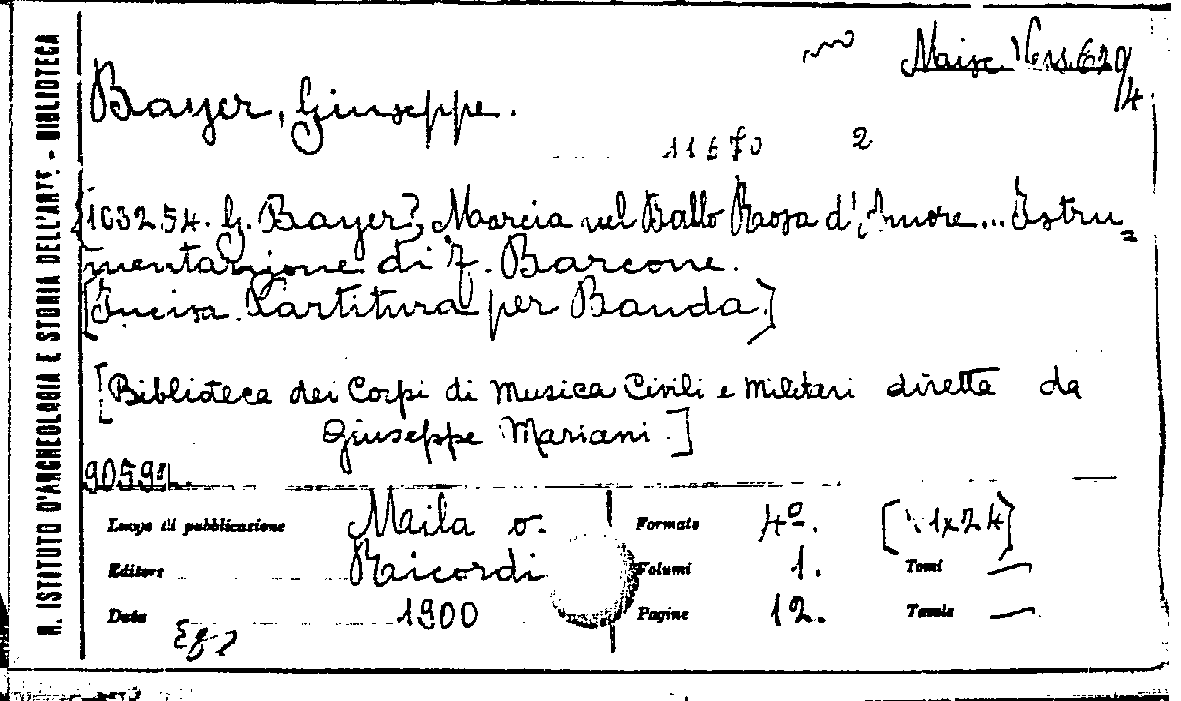 R. ISTITUTO D'ARCHEOLOGIA E STORIA DELL'ARTE - BIBLIOTECA
Bayer, Giuseppe.
2
103254. G. Bayer, Marcia nel Ballo Rosa d'Amore... Istru=
mentazione di Barcone.
[Incisa. Partitura per Banda.]
[Biblioteca dei Corpi di Musica Civili e Militari diretta da
Giuseppe Mariani.]
90594.
Luogo di pubblicazione Milano.
Editore Ricordi
Data 1900
Formato 4º.
Volumi 1. Tomi —
Pagine 12. Tavole —